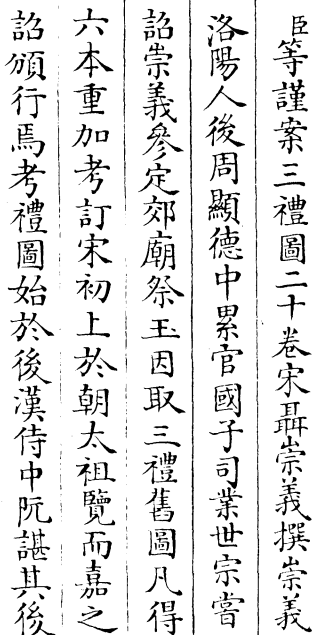 臣等謹案三禮圖二十卷宋聶崇義撰崇義
洛陽人後周顯德中累官國子司業世宗嘗
詔崇義參定郊廟祭玉因取三禮舊圖凡得
六本重加考訂宋初上於朝太祖覽而嘉之
詔頒行焉考禮圖始於後漢侍中阮諶其後